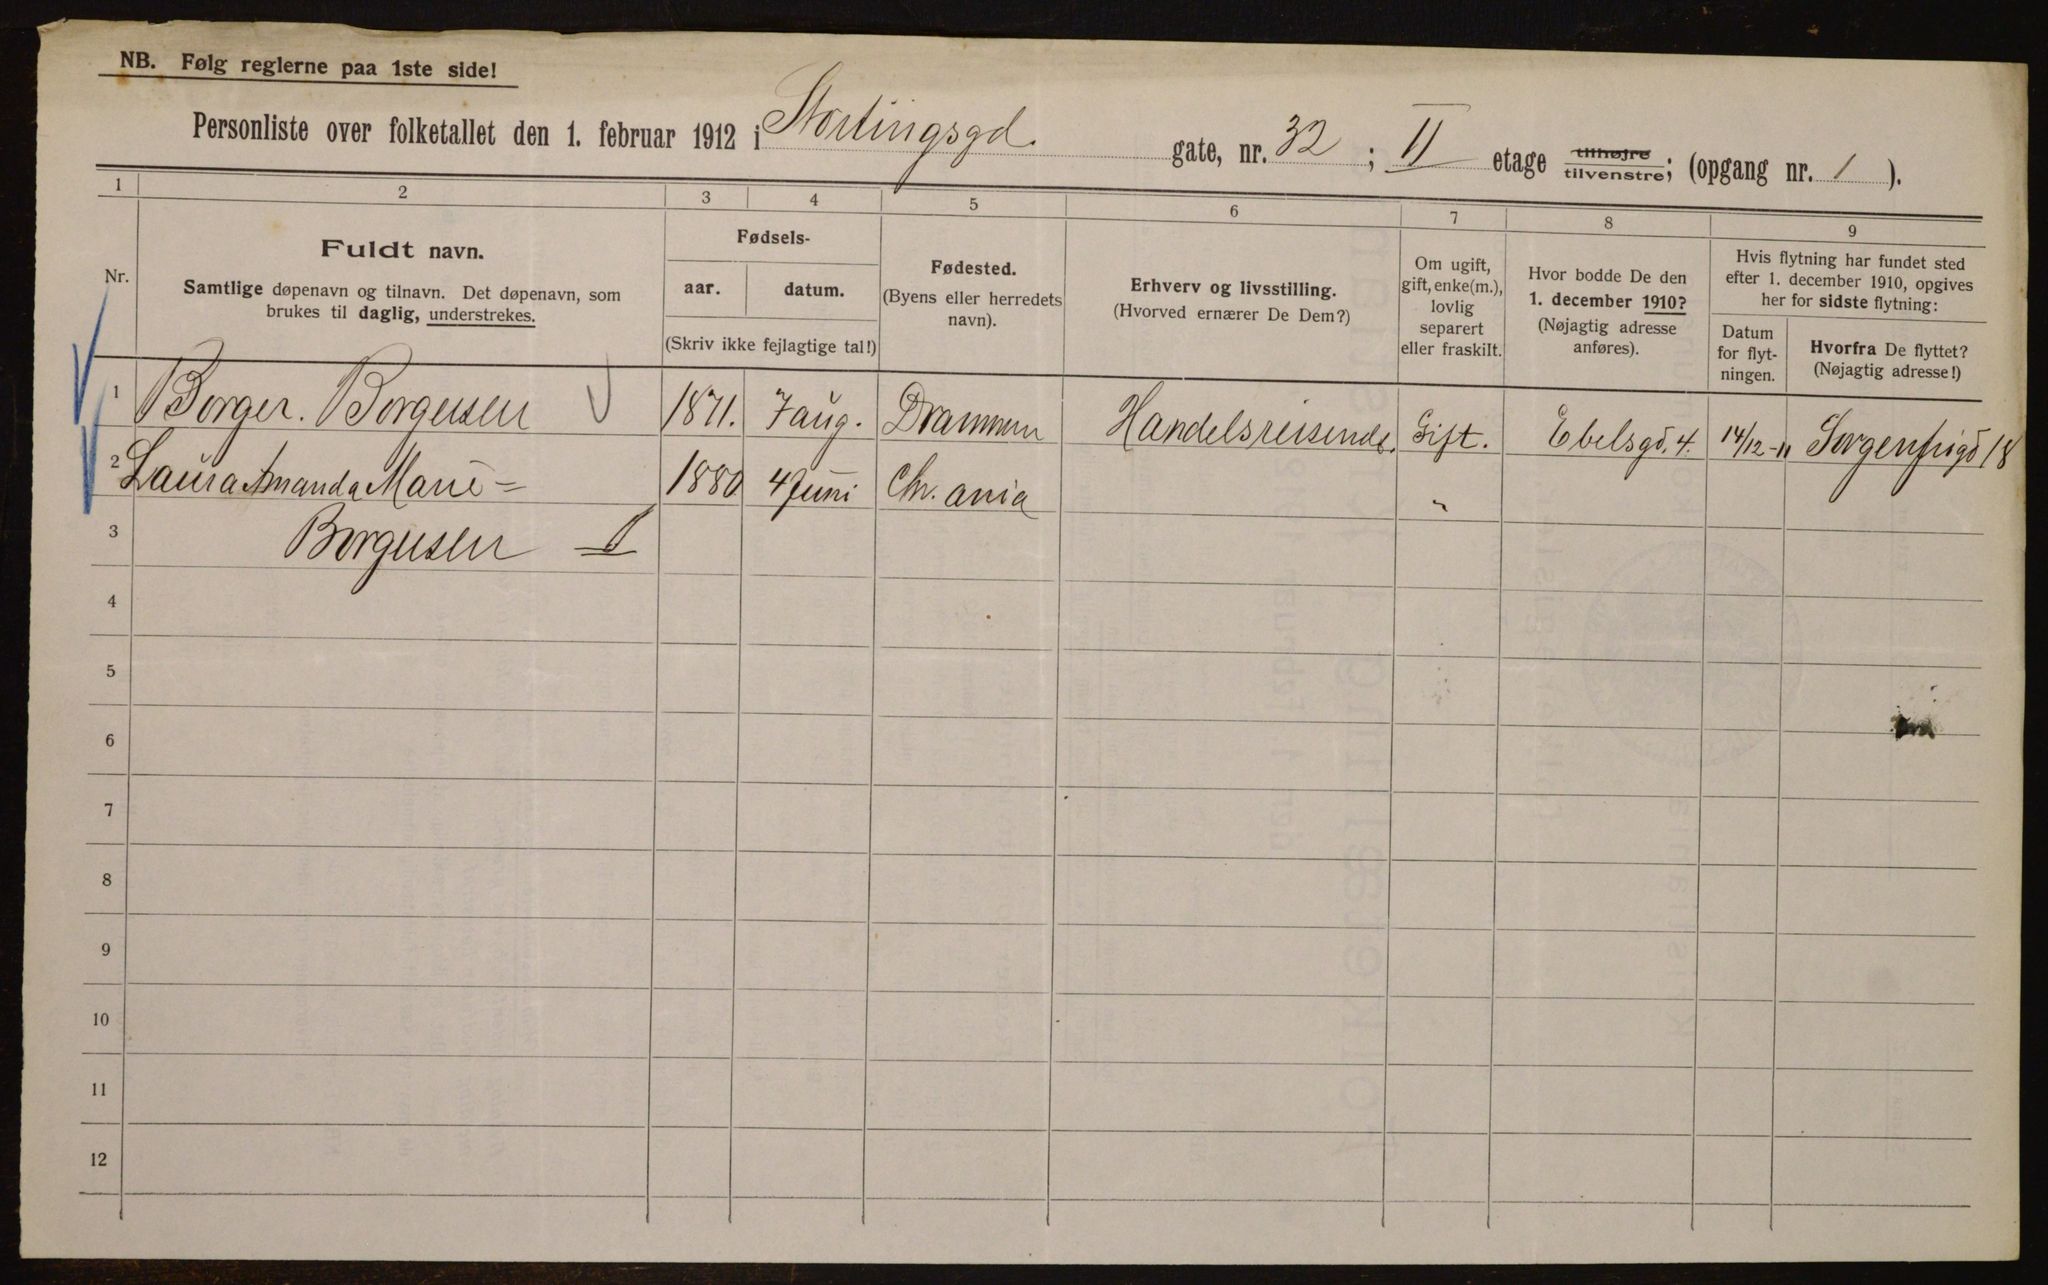 NB. Følg reglerne paa 1ste side!
Personliste over folketallet den 1. februar 1912 i Stortingsgd. gate, nr. 32; II etage tilhøjre tilvenstre; (opgang nr. 1).
1 2 3 4 5 6 7 8 9
Nr.
Fuldt navn.
Samtlige døpenavn og tilnavn. Det døpenavn, som
brukes til daglig, understrekes.
Fødsels-
aar. datum.
(Skriv ikke fejlagtige tal!)
Fødested.
(Byens eller herredets
navn).
Erhverv og livsstilling.
(Hvorved ernærer De Dem?)
Om ugift,
gift, enke(m.),
lovlig
separert
eller fraskilt.
Hvor bodde De den
1. december 1910?
(Nøjagtig adresse
anføres).
Hvis flytning har fundet sted
efter 1. december 1910, opgives
her for sidste flytning:
Datum
for flyt-
ningen.
Hvorfra De flyttet?
(Nøjagtig adresse!)
1 Borger. Borgersen 1871. 7 aug. Drammen Handelsreisende. Gift. Ebelsgd. 4. 14/12-11 Sorgenfrigd 18
2 Laura Amanda Marie = 1880 4 Juni Chr. ania "
3 Borgersen
4
5
6
7
8
9
10
11
12